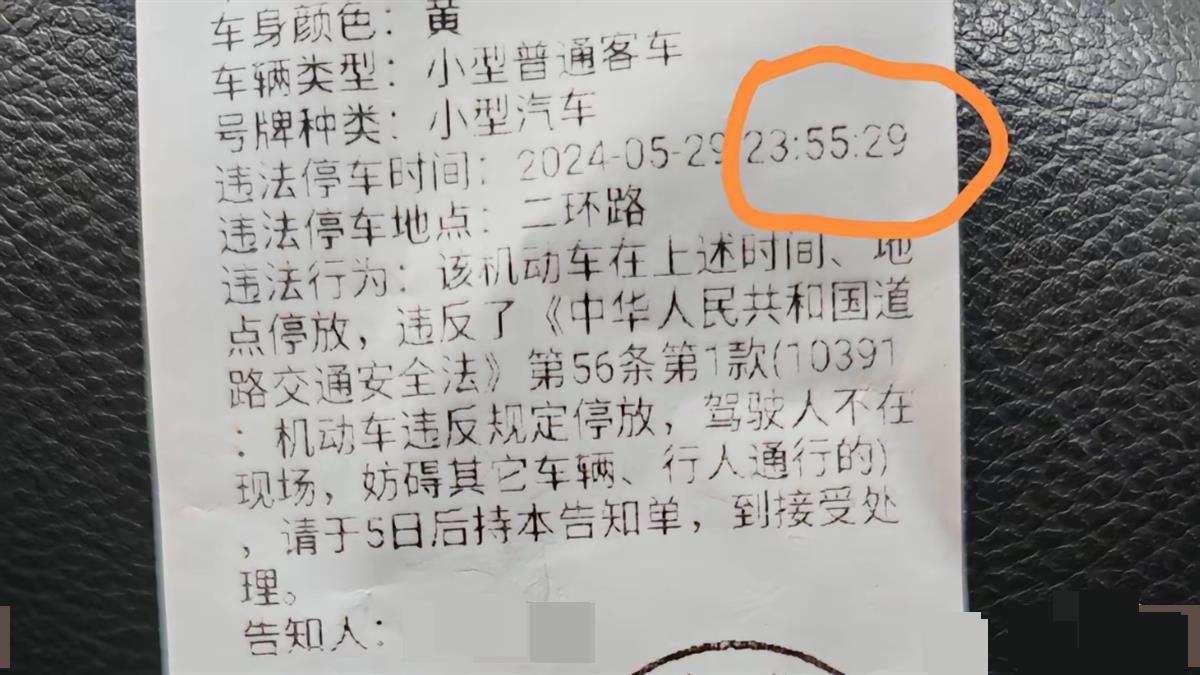 车身颜色：黄
车辆类型：小型普通客车
号牌种类：小型汽车
违法停车时间：2024-05-29 23:55:29
违法停车地点：二环路
违法行为：该机动车在上述时间、地
点停放，违反了《中华人民共和国道
路交通安全法》第56条第1款(10391
：机动车违反规定停放，驾驶人不在
现场，妨碍其它车辆、行人通行的)
，请于5日后持本告知单，到接受处
理。
告知人：